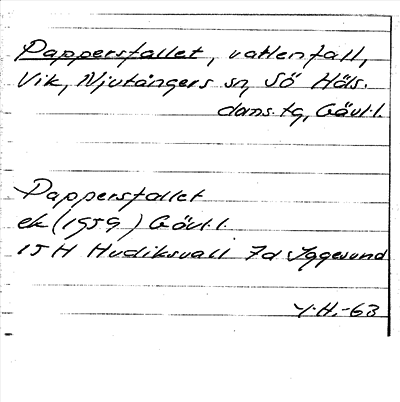 Pappersfallet, vattenfall,
Vik, Njutångers sn, Sö Häls.
doms. tg, Gävl.l.
Pappersfallet
ek (1959) Gävl.l.
15 H Hudiksvall 7d Iggesund
Y.H.-63